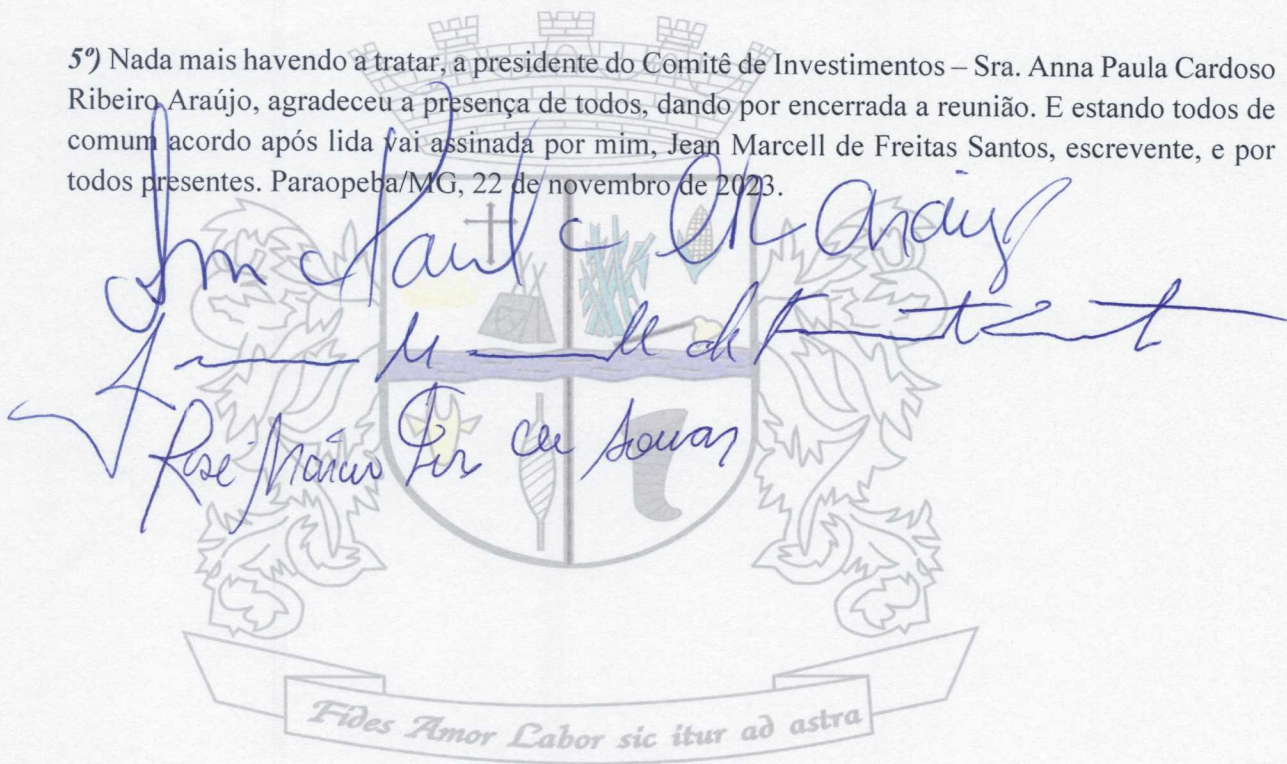 5º) Nada mais havendo a tratar, a presidente do Comitê de Investimentos – Sra. Anna Paula Cardoso
Ribeiro Araújo, agradeceu a presença de todos, dando por encerrada a reunião. E estando todos de
comum acordo após lida vai assinada por mim, Jean Marcell de Freitas Santos, escrevente, e por
todos presentes. Paraopeba/MG, 22 de novembro de 2023.
Fides Amor Labor sic itur ad astra